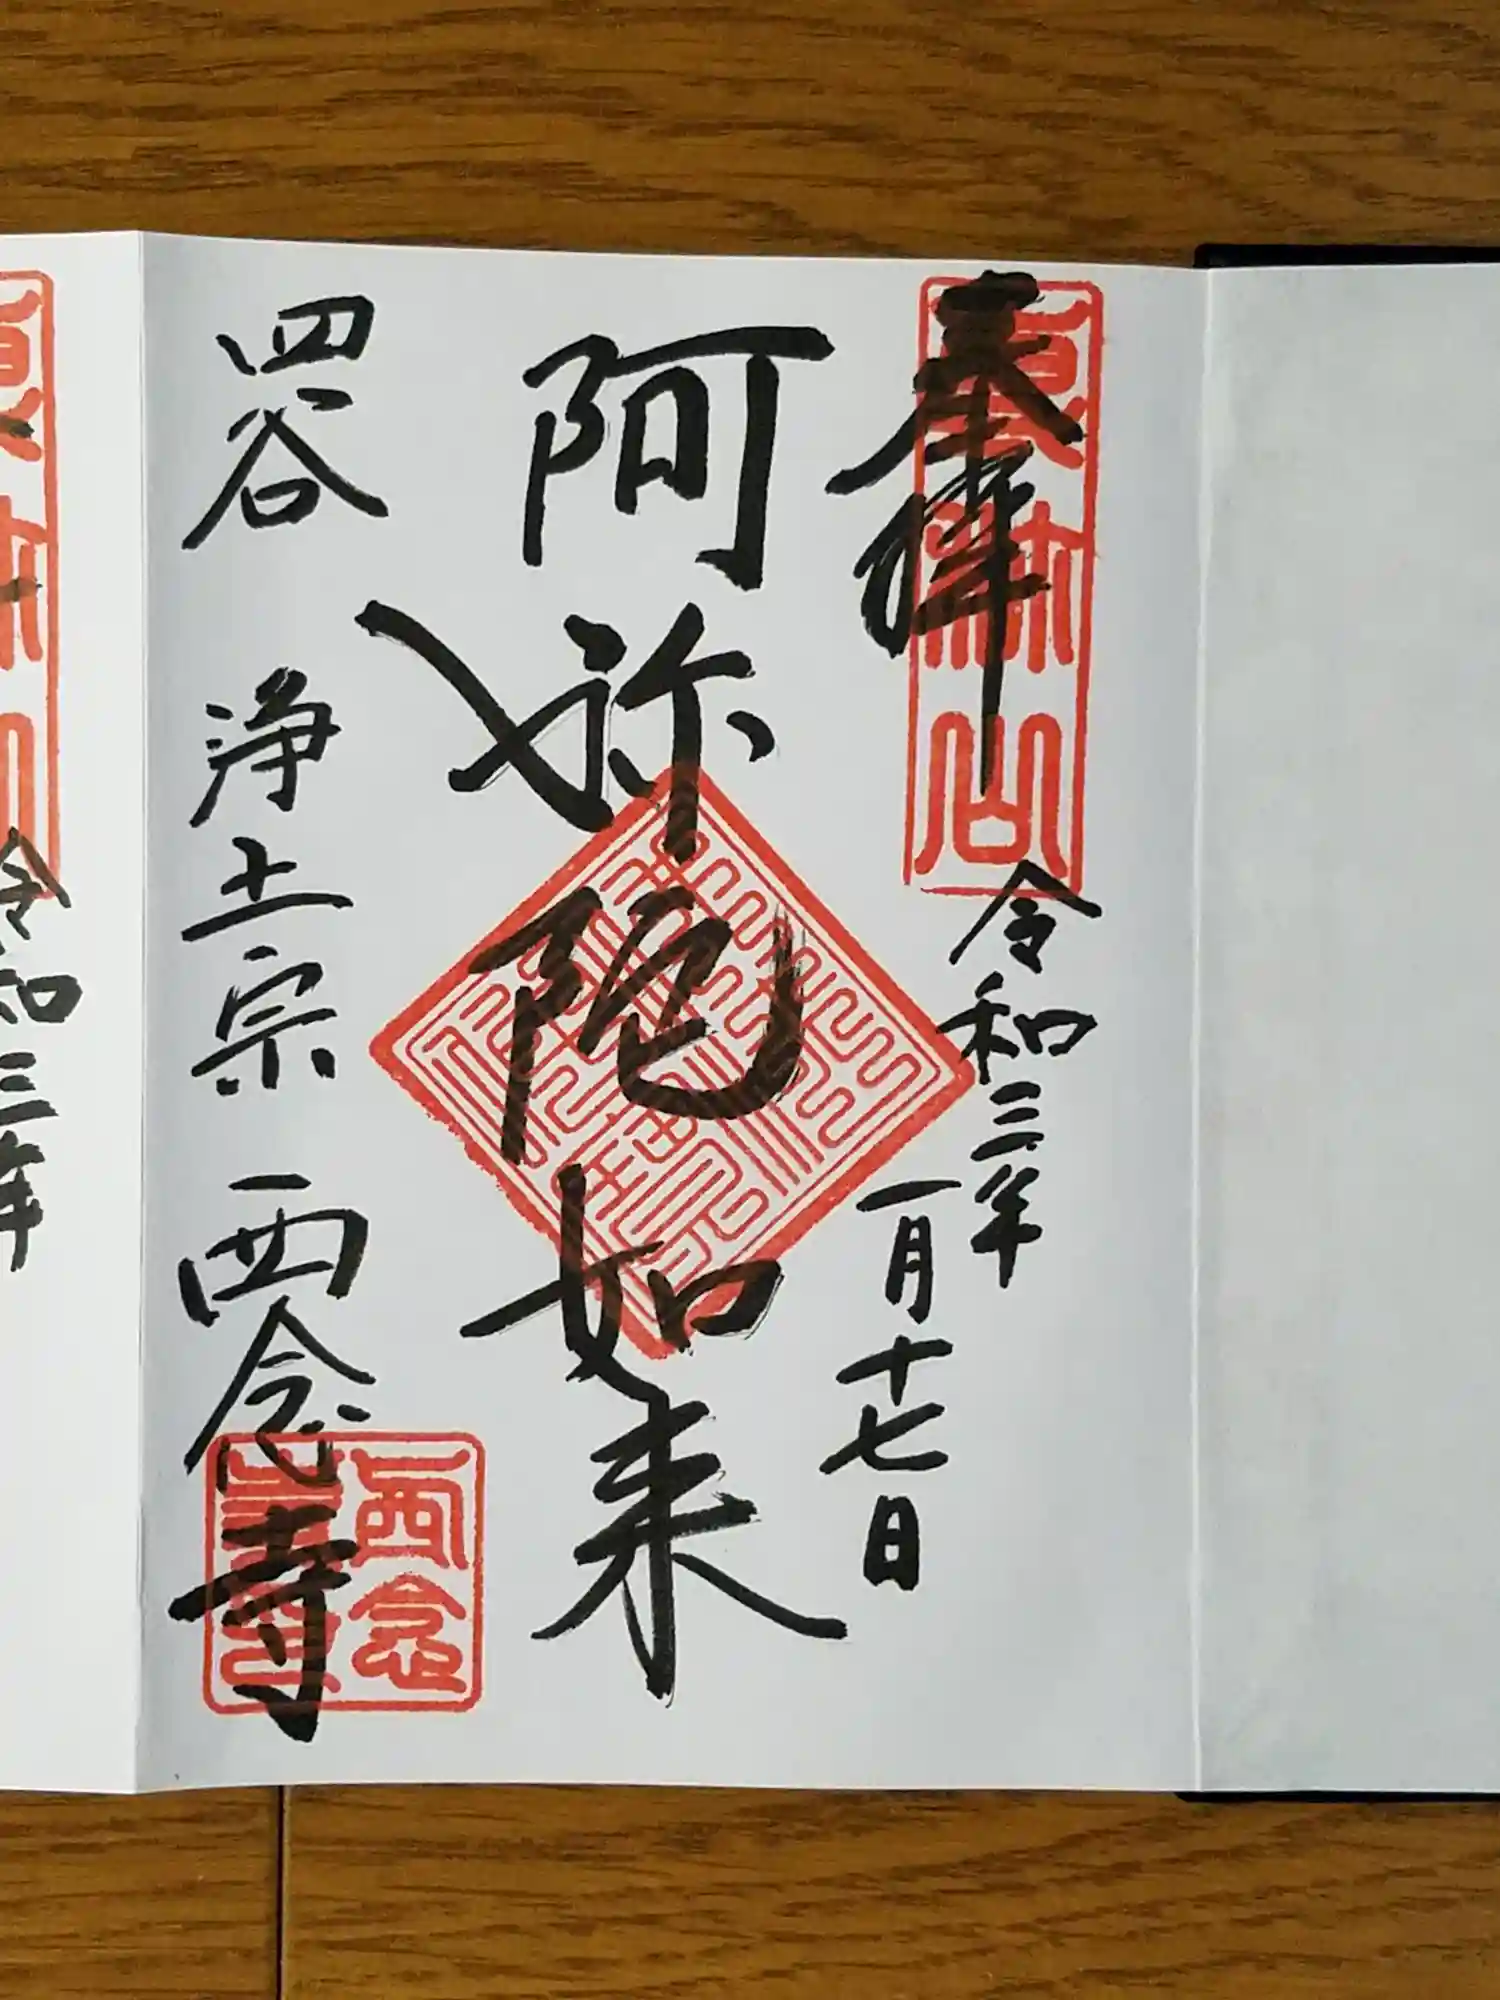 奉拝
専称山
令和三年
一月十七日
阿弥陀如来
四谷 浄土宗 西念寺
西念
令和三年